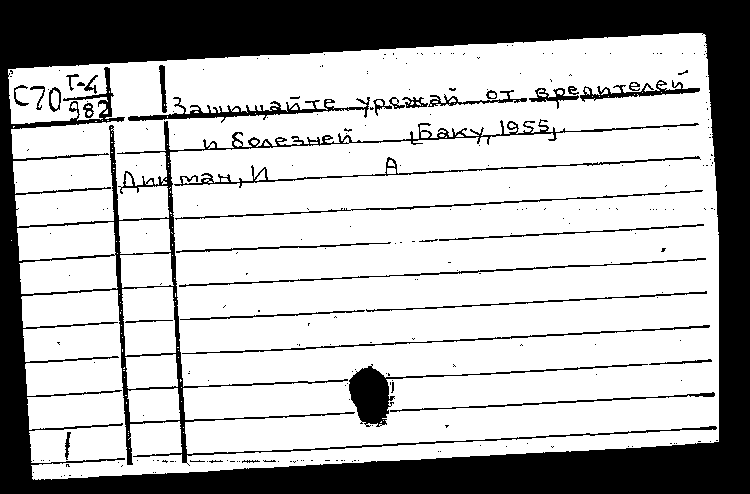 С70 Т-4
982
Защищайте урожай от вредителей
и болезней. [Баку, 1955].
Дикман, И А